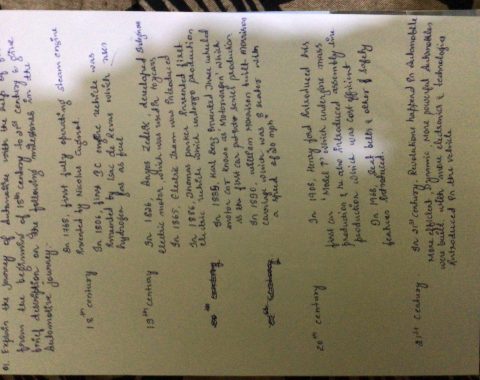 Q1. Explain the journey of automotive with the help of
from the beginning of 18th century to 21st century & give
brief description on the following milestones in the
Automotive journey.
18th century
In 1765, first fully operating steam engine
Invented by Nicolas Cugnot.
In 1806, first IC engine vehicle was
Invented by Isac de Rivas which uses
hydrogen gas as fuel
19th century
In 1826, Anyos Jedlik, developed
Electric motor which was used to
In 1865, Electric Tram was Introduced
In 1884, Thomas parker Invented first
Electric vehicle which undergo production
In 1885, Karl Benz Invented Three wheeled
motor car known as Motorwagen which
is the first car put into series production
In 1890, William Morrison built
carriage which was 6 seater with
a speed of 20 mph
20th century
In 1908, Henry ford Introduced his
first car "Model T" which undergone mass
production, he also Introduced assembly line
production which was cost efficient
In 1968, Seat belts & other safety
features Introduced
21st century
In 21st century, Revolutions happened in Automobile
More efficient Dynamic More powerful Automobiles
were built with more electronics & technologies
Introduced in the vehicle.